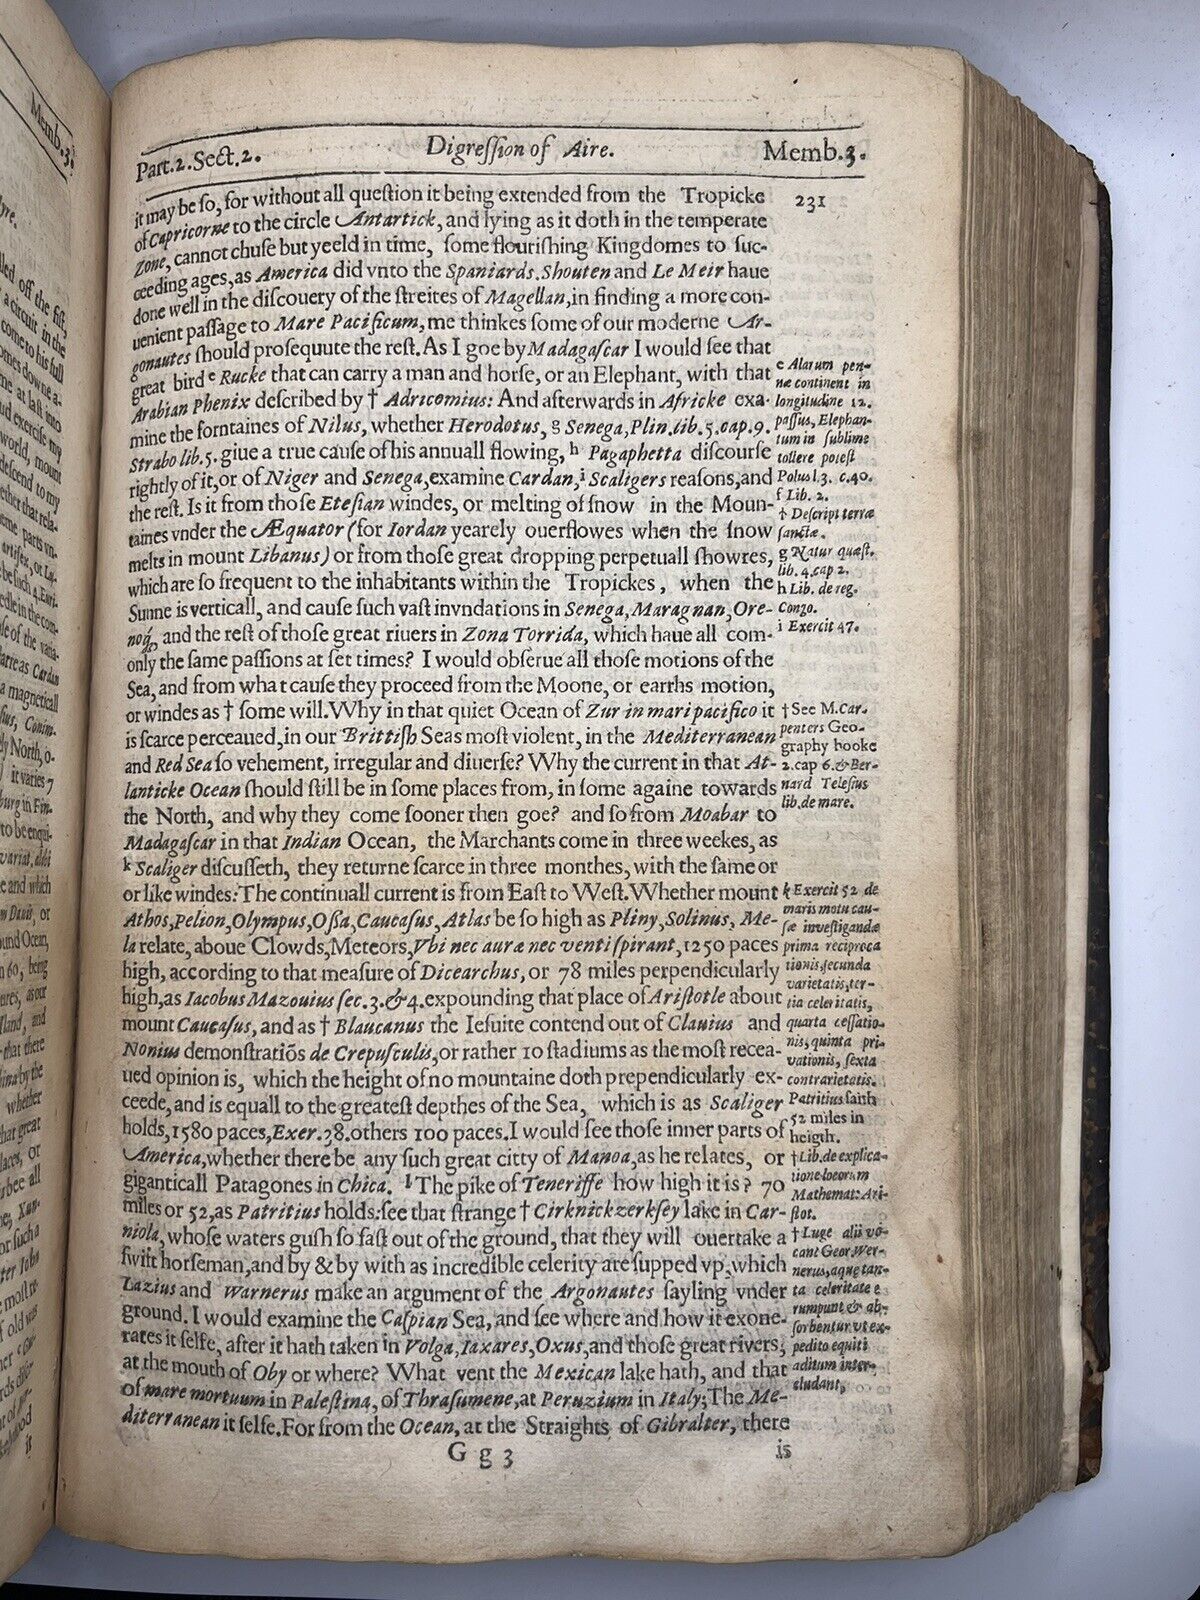 Part.2.Sect.2. Digreſſion of Aire. Memb.3.
231
it may be ſo, for without all queſtion it being extended from the Tropicke
of Capricorne to the circle Antartick, and lying as it doth in the temperate
Zone, cannot chuſe but yeeld in time, ſome flouriſhing Kingdomes to ſuc-
ceeding ages, as America did vnto the Spaniards. Shouten and Le Meir haue
done well in the diſcouery of the ſtreites of Magellan, in finding a more con-
uenient paſſage to Mare Pacificum, me thinkes ſome of our moderne Ar-
gonautes ſhould proſequute the reſt. As I goe by Madagaſcar I would ſee that
great bird e Rucke that can carry a man and horſe, or an Elephant, with that
Arabian Phenix deſcribed by † Adricomius: And afterwards in Africke exa-
mine the forntaines of Nilus, whether Herodotus, g Senega, Plin. lib. 5. cap. 9.
Strabo lib. 5. giue a true cauſe of his annuall flowing, h Pagaphetta diſcourſe
rightly of it, or of Niger and Senega, examine Cardan, i Scaligers reaſons, and
the reſt. Is it from thoſe Eteſian windes, or melting of ſnow in the Moun-
taines vnder the Æquator (for Iordan yearely ouerflowes when the ſnow
melts in mount Libanus) or from thoſe great dropping perpetuall ſhowres,
which are ſo frequent to the inhabitants within the Tropickes, when the
Sunne is verticall, and cauſe ſuch vaſt invndations in Senega, Maragnan, Ore-
noq́, and the reſt of thoſe great riuers in Zona Torrida, which haue all com-
only the ſame paſſions at ſet times? I would obſerue all thoſe motions of the
Sea, and from what cauſe they proceed from the Moone, or earrhs motion,
or windes as † ſome will. Why in that quiet Ocean of Zur in mari pacifico it
is ſcarce perceaued, in our Brittiſh Seas moſt violent, in the Mediterranean
and Red Sea ſo vehement, irregular and diuerſe? Why the current in that At-
lanticke Ocean ſhould ſtill be in ſome places from, in ſome againe towards
the North, and why they come ſooner then goe? and ſo from Moabar to
Madagaſcar in that Indian Ocean, the Marchants come in three weekes, as
k Scaliger diſcuſſeth, they returne ſcarce in three monthes, with the ſame or
or like windes: The continuall current is from Eaſt to Weſt. Whether mount
Athos, Pelion, Olympus, Oßa, Caucaſus, Atlas be ſo high as Pliny, Solinus, Me-
la relate, aboue Clowds, Meteors, Vbi nec auræ nec venti ſpirant, 1250 paces
high, according to that meaſure of Dicearchus, or 78 miles perpendicularly
high, as Iacobus Mazouius ſec. 3. & 4. expounding that place of Ariſtotle about
mount Caucaſus, and as † Blaucanus the Ieſuite contend out of Clauius and
Nonius demonſtratiōs de Crepuſculis, or rather 10 ſtadiums as the moſt recea-
ued opinion is, which the height of no mountaine doth prependicularly ex-
ceede, and is equall to the greateſt depthes of the Sea, which is as Scaliger
holds, 1580 paces, Exer. 38. others 100 paces. I would ſee thoſe inner parts of
America, whether there be any ſuch great citty of Manoa, as he relates, or
giganticall Patagones in Chica. l The pike of Teneriffe how high it is? 70
miles or 52, as Patritius holds: ſee that ſtrange † Cirknickzerkſey lake in Car-
niola, whoſe waters guſh ſo faſt out of the ground, that they will ouertake a
ſwift horſeman, and by & by with as incredible celerity are ſupped vp, which
Lazius and Warnerus make an argument of the Argonautes ſayling vnder
ground. I would examine the Caſpian Sea, and ſee where and how it exone-
rates it ſelfe, after it hath taken in Volga, Iaxares, Oxus, and thoſe great rivers;
at the mouth of Oby or where? What vent the Mexican lake hath, and that
of mare mortuum in Paleſtina, of Thraſumene, at Peruzium in Italy; The Me-
diterranean it ſelfe. For from the Ocean, at the Straights of Gibralter, there
G g 3 is
e Alarum pen-
næ continent in
longitudine 12.
paſſus, Elephan-
tum in ſublime
tollere poteſt
Polus l. 3. c. 40.
f Lib. 2.
† Deſcript terræ
ſanctæ.
g Natur quæſt.
lib. 4. cap 2.
h Lib. de reg.
Congo.
i Exercit 47.
† See M. Car-
penters Geo-
graphy booke
2. cap 6. & Ber-
nard Teleſius
lib. de mare.
k Exercit 52 de
maris motu cau-
ſæ inveſtigandæ
prima reciproca
tionis, ſecunda
varietatis, ter-
tia celeritatis,
quarta ceſſatio-
nis, quinta pri-
vationis, ſexta
contrarietatis.
Patritius ſaith
52 miles in
heigth.
† Lib. de explica-
tione locorum
Mathemat: Ari-
ſtot.
† Luge alii vo-
cant Geor Wer-
nerus, aquæ tan-
ta celeritate e
rumpunt, & ab-
ſorbentur vt ex-
pedito equiti
aditum inter-
cludant,